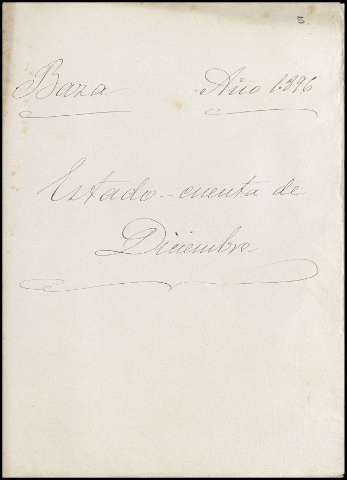 Baza Año 1.896
Estado-cuenta de
Diciembre